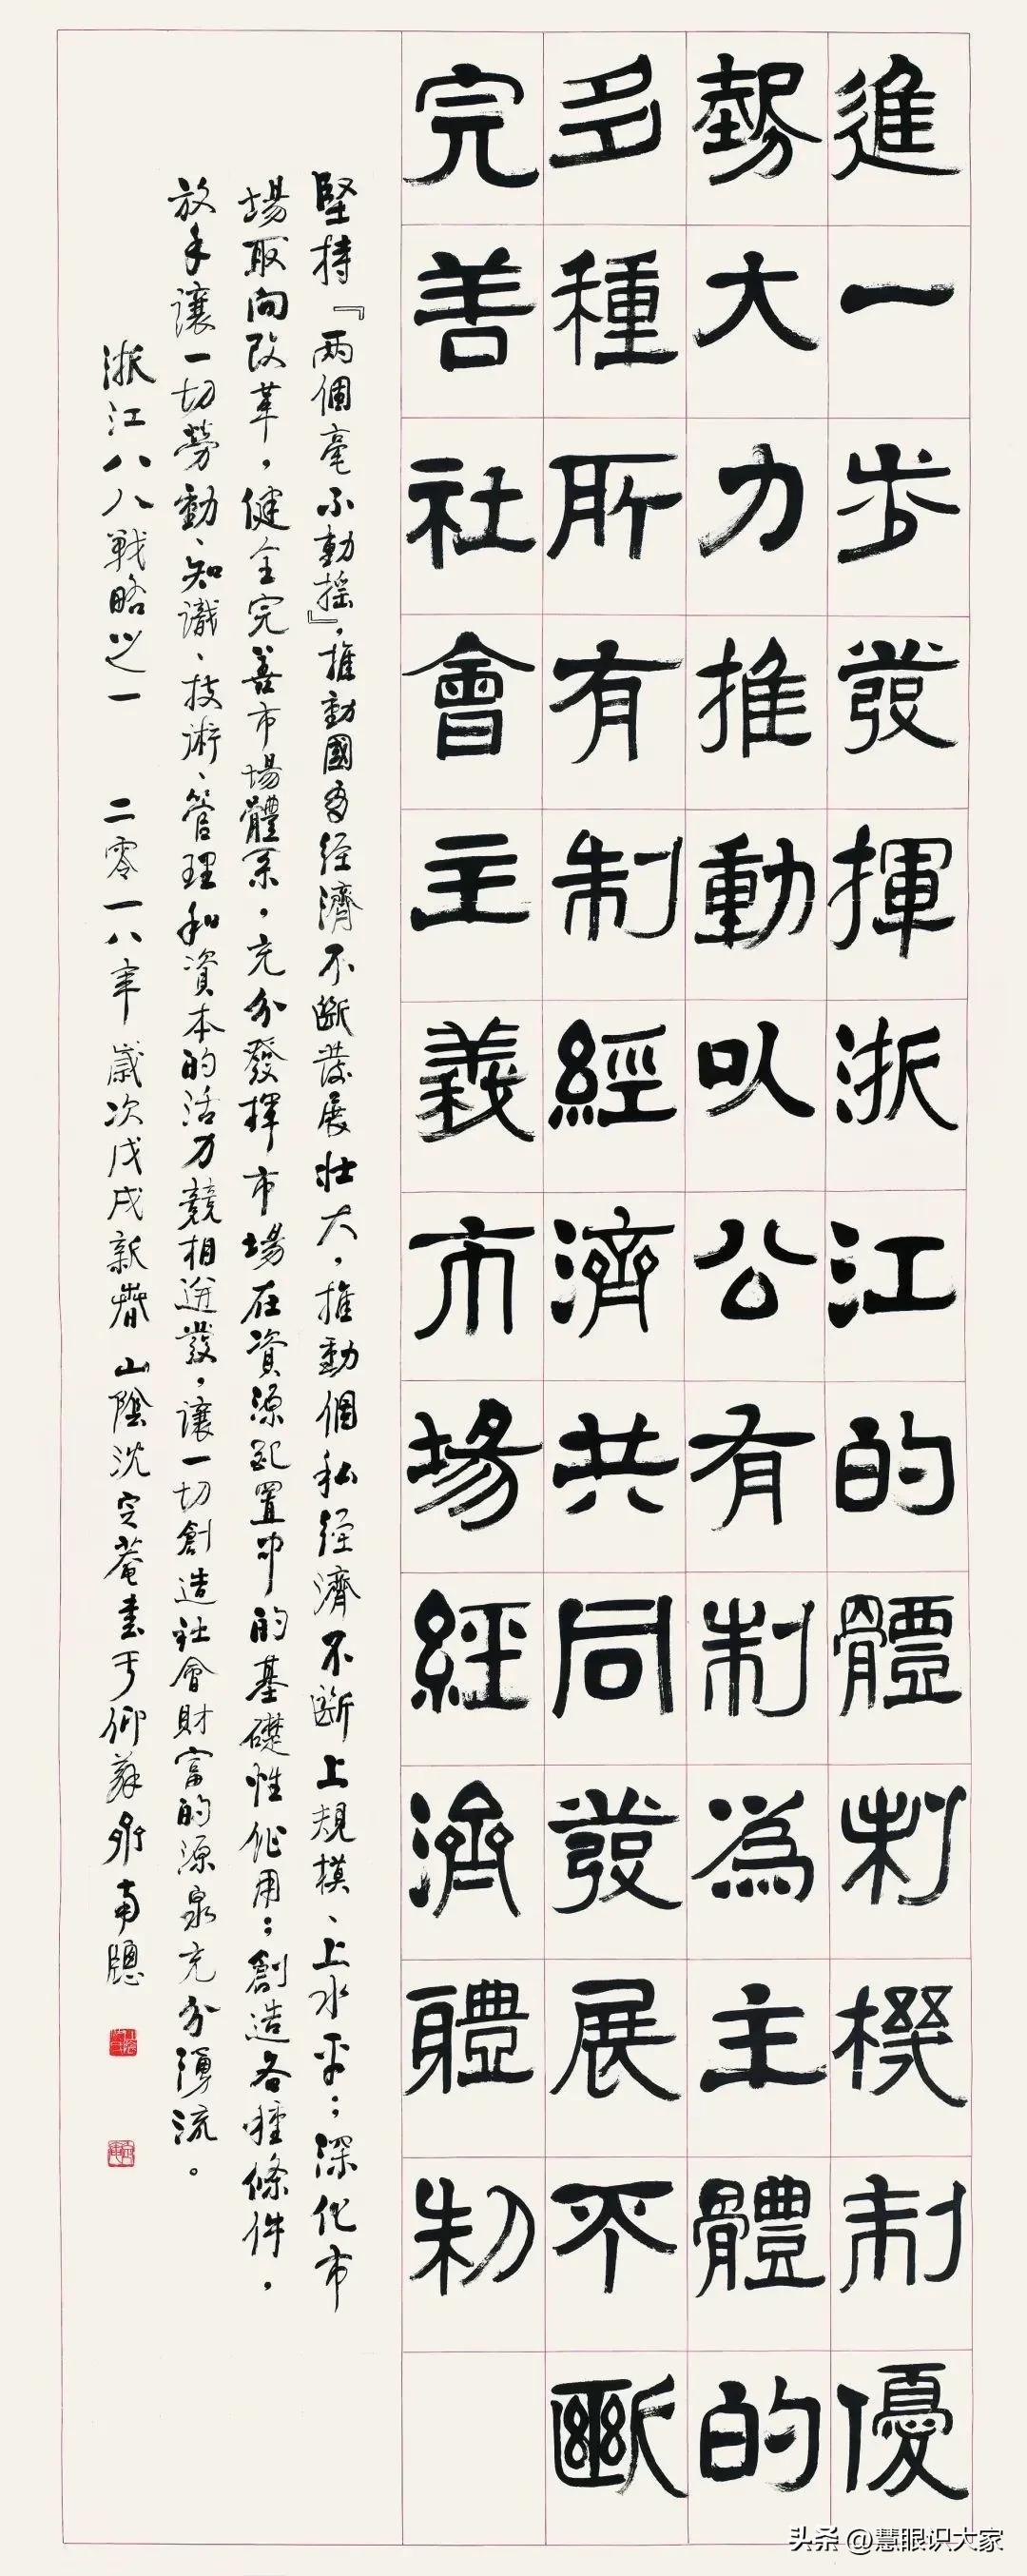 進一步發揮浙江的體制機制優
勢大力推動以公有制爲主體的
多種所有制經濟共同發展不斷
完善社會主義市場經濟體制
堅持『两個毫不動摇』，推動國有經濟不斷發展壮大，推動個私經濟不斷上規模、上水平；深化市
場取向改革，健全完善市場體系，充分發揮市場在資源配置中的基礎性作用；創造各種條件，
放手讓一切勞動、知識、技術、管理和資本的活力競相迸發，讓一切創造社會財富的源泉充分湧流。
浙江八八戰略之一 二零一八年歲次戊戌新春 山陰沈定菴書于仰蘇齋南牕
头条 @慧眼识大家